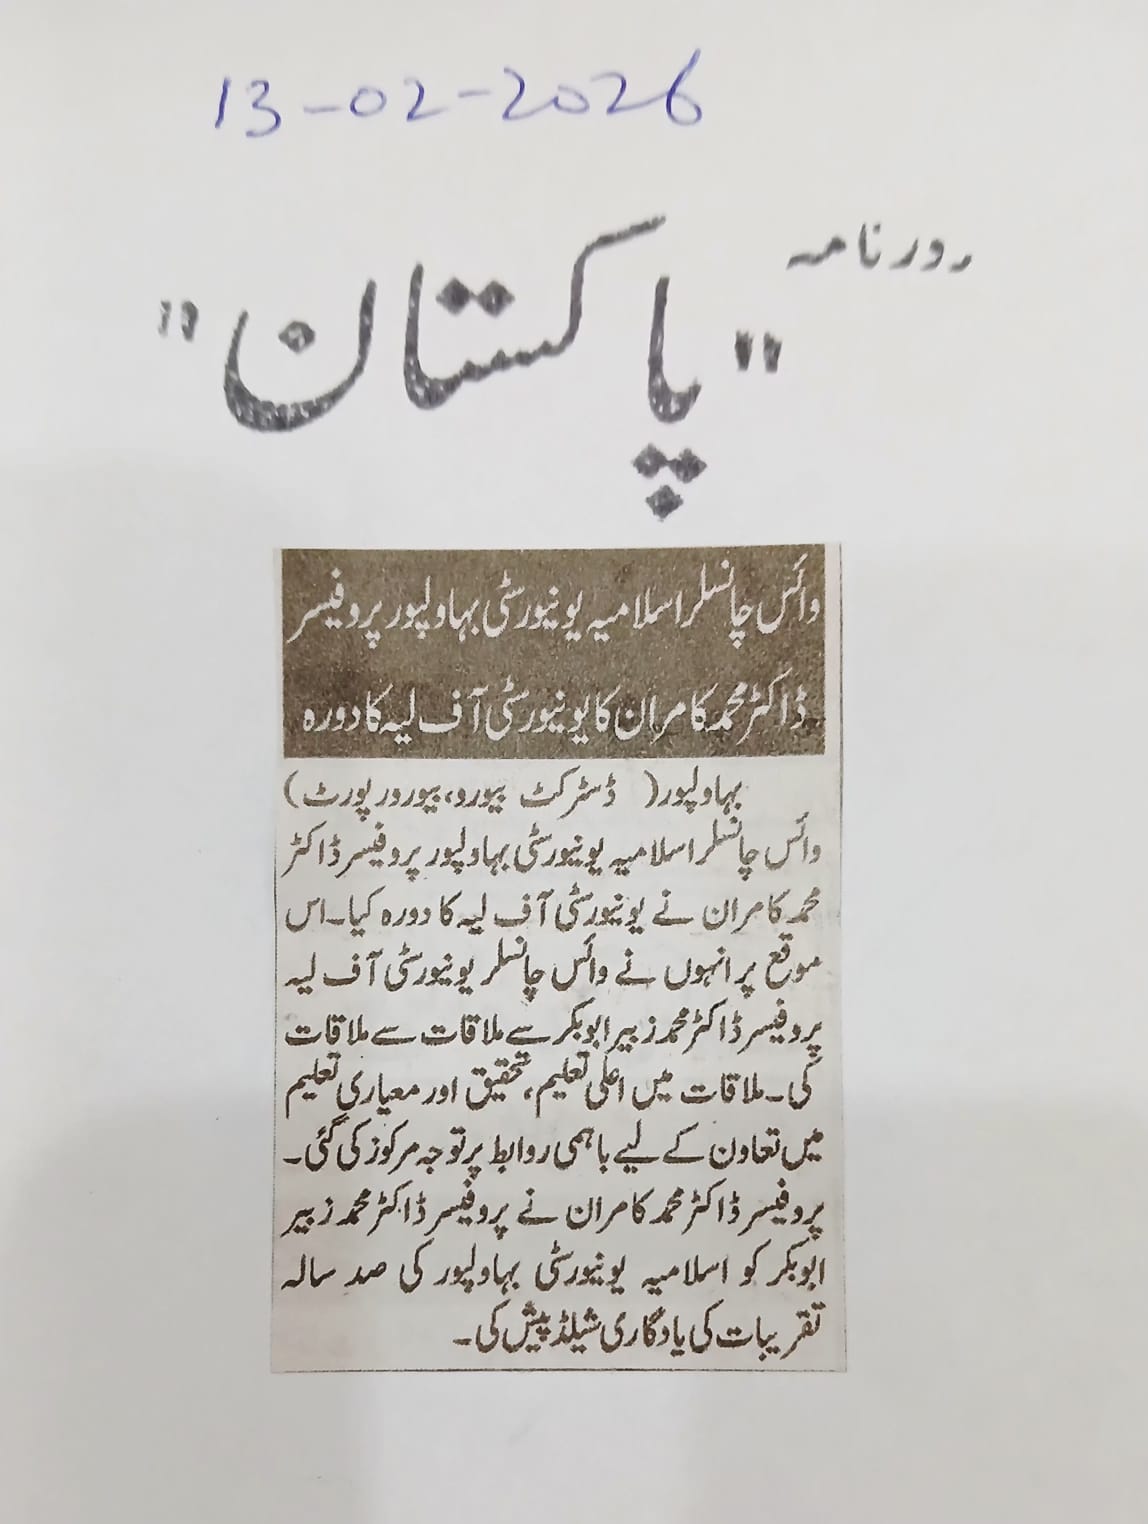 13-02-2026
روزنامہ
"پاکستان"
وائس چانسلر اسلامیہ یونیورسٹی بہاولپور پروفیسر
ڈاکٹر محمد کامران کا یونیورسٹی آف لیہ کا دورہ
بہاولپور( ڈسٹرکٹ بیورو، بیورورپورٹ)
وائس چانسلر اسلامیہ یونیورسٹی بہاولپور پروفیسر ڈاکٹر
محمد کامران نے یونیورسٹی آف لیہ کا دورہ کیا۔ اس
موقع پر انہوں نے وائس چانسلر یونیورسٹی آف لیہ
پروفیسر ڈاکٹر محمد زبیر ابوبکر سے ملاقات سے ملاقات
کی۔ ملاقات میں اعلی تعلیم، تحقیق اور معیاری تعلیم
میں تعاون کے لیے باہمی روابط پر توجہ مرکوز کی گئی۔
پروفیسر ڈاکٹر محمد کامران نے پروفیسر ڈاکٹر محمد زبیر
ابوبکر کو اسلامیہ یونیورسٹی بہاولپور کی صد سالہ
تقریبات کی یادگاری شیلڈ پیش کی۔